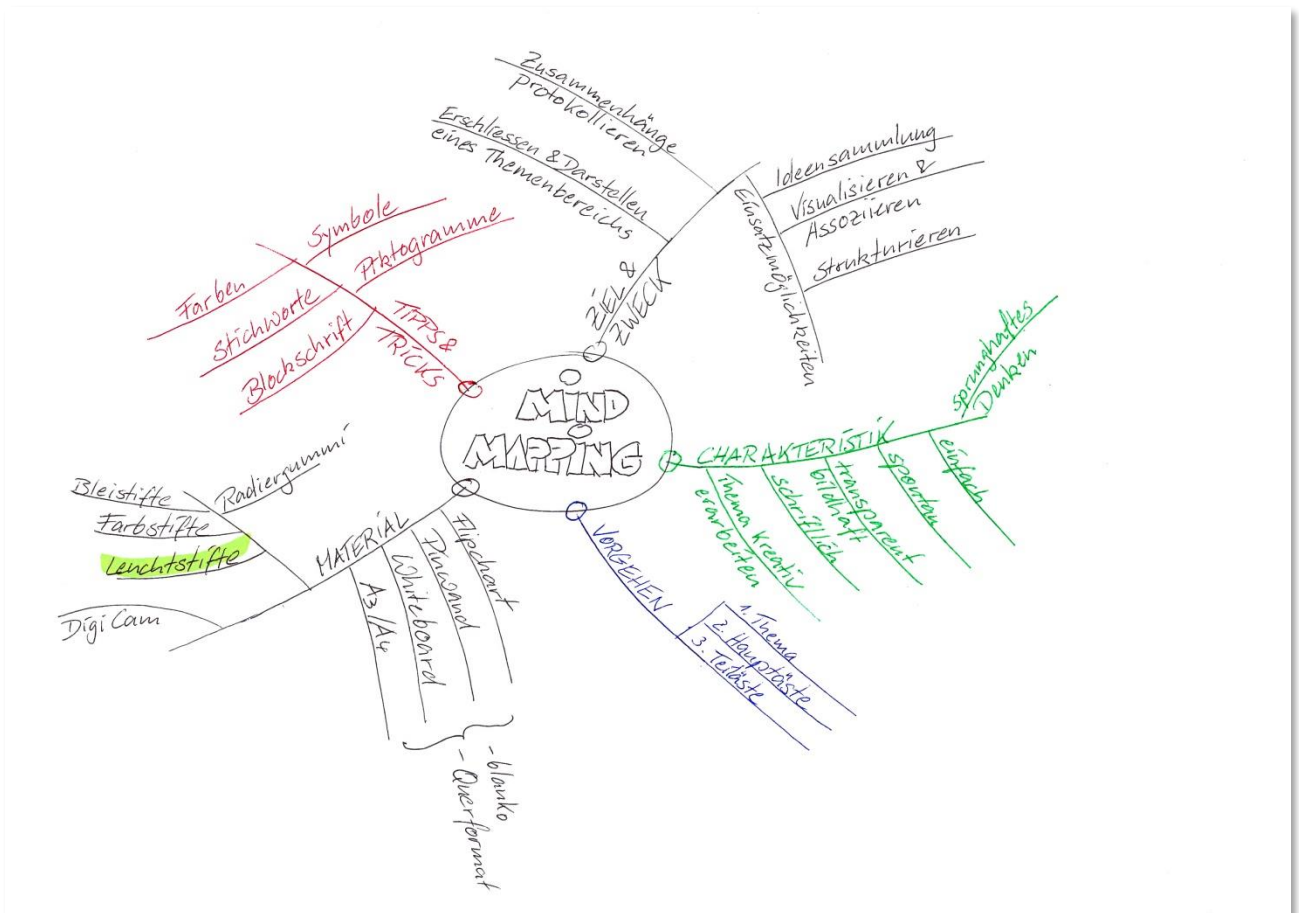 MIND
MAPPING
ZIEL &
ZWECK
Zusammenhänge
protokollieren
Erschliessen & Darstellen
eines Themenbereichs
Einsatzmöglichkeiten
Ideensammlung
Visualisieren &
Assoziieren
Strukturieren
CHARAKTERISTIK
sprunghaftes
Denken
einfach
spontan
transparent
bildhaft
schriftlich
Thema kreativ
erarbeiten
VORGEHEN
1. Thema
2. Hauptäste
3. Teiläste
MATERIAL
Flipchart
Pinwand
Whiteboard
A3/A4
- blanko
- Querformat
Radiergummi
Bleistifte
Farbstifte
Leuchtstifte
DigiCam
TIPPS &
TRICKS
Symbole
Piktogramme
Farben
Stichworte
Blockschrift